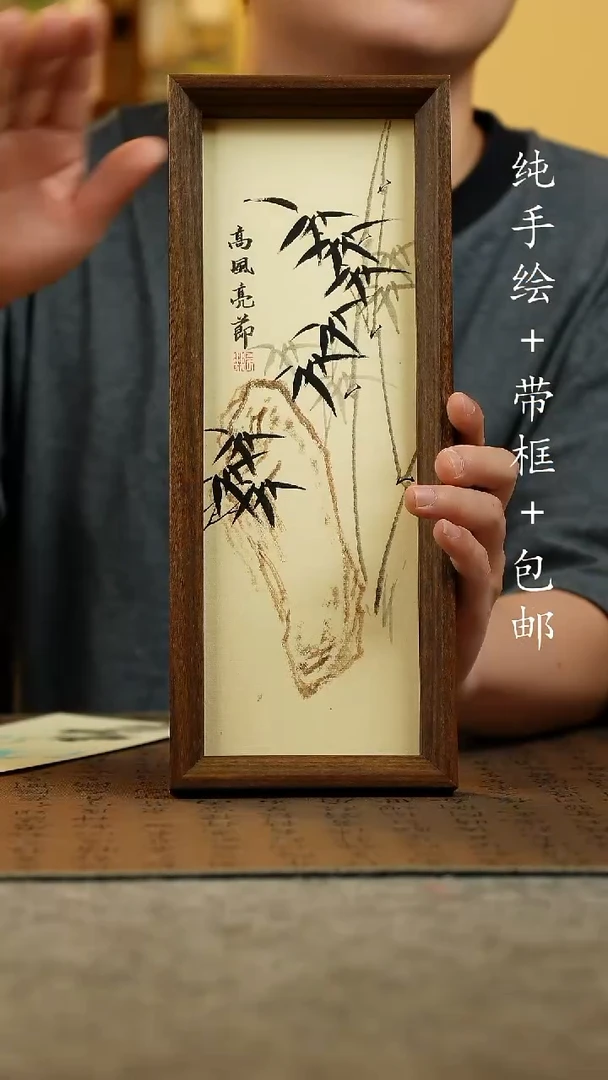 高風亮節
纯手绘+带框+包邮